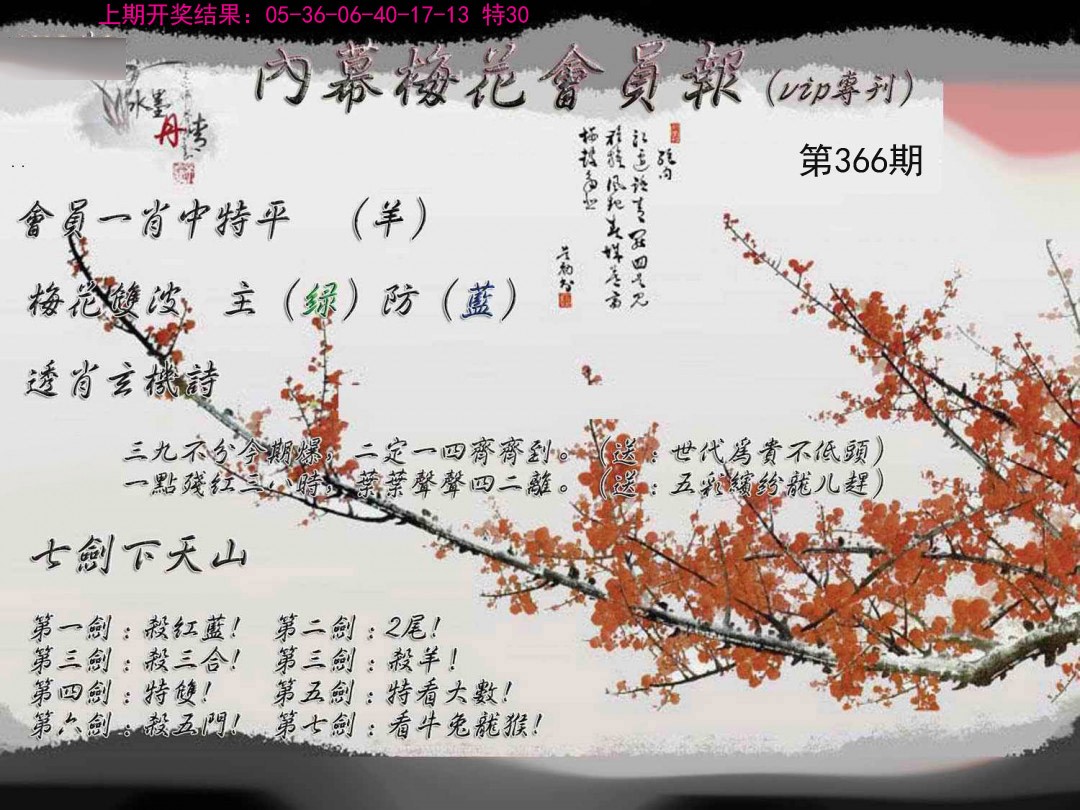 上期开奖结果：05-36-06-40-17-13 特30
內幕梅花會員報（vip專刊）
水墨
丹青
第366期
會員一肖中特平 （羊）
梅花雙波 主（绿）防（藍）
透肖玄機詩
三九不分今期爆，二定一四齊齊到。（送：世代為貴不低頭）
一點殘紅三八時，葉葉聲聲四二離。（送：五彩繽紛龍儿趕）
七劍下天山
第一劍：殺紅藍！ 第二劍：2尾！
第三劍：殺三合！ 第三劍：殺羊！
第四劍：特雙！ 第五劍：特看大數！
第六劍：殺五門！ 第七劍：看牛兔龍猴！